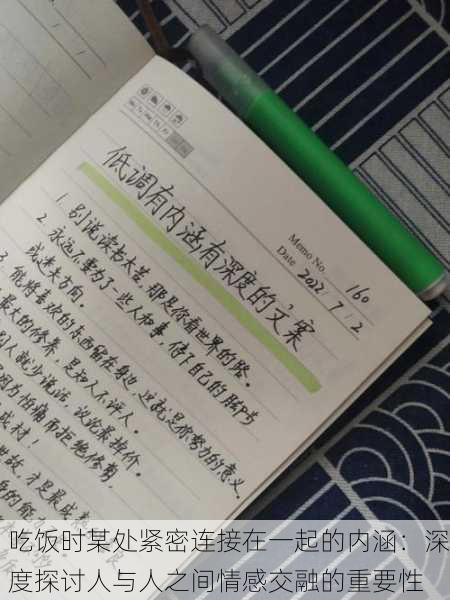 Mo. Tu. We. Th. Fr. Sa. Su.
Memo No. 160
Date 2021 7 / 2
低调有内涵有深度的文案
1. 别说读书太苦，那是你看世界的路。
2. 永远不要为了一些人和事，停了自己的脚步
或迷失方向。
3. 能将喜欢的东西留在身边，这就是你努力的意义。
最大的修养，是知人不评人。
别人就少说话，议论最掉价。
因为怕痛而拒绝修剪
成材！
世故，才是最成
吃饭时某处紧密连接在一起的内涵：深
度探讨人与人之间情感交融的重要性